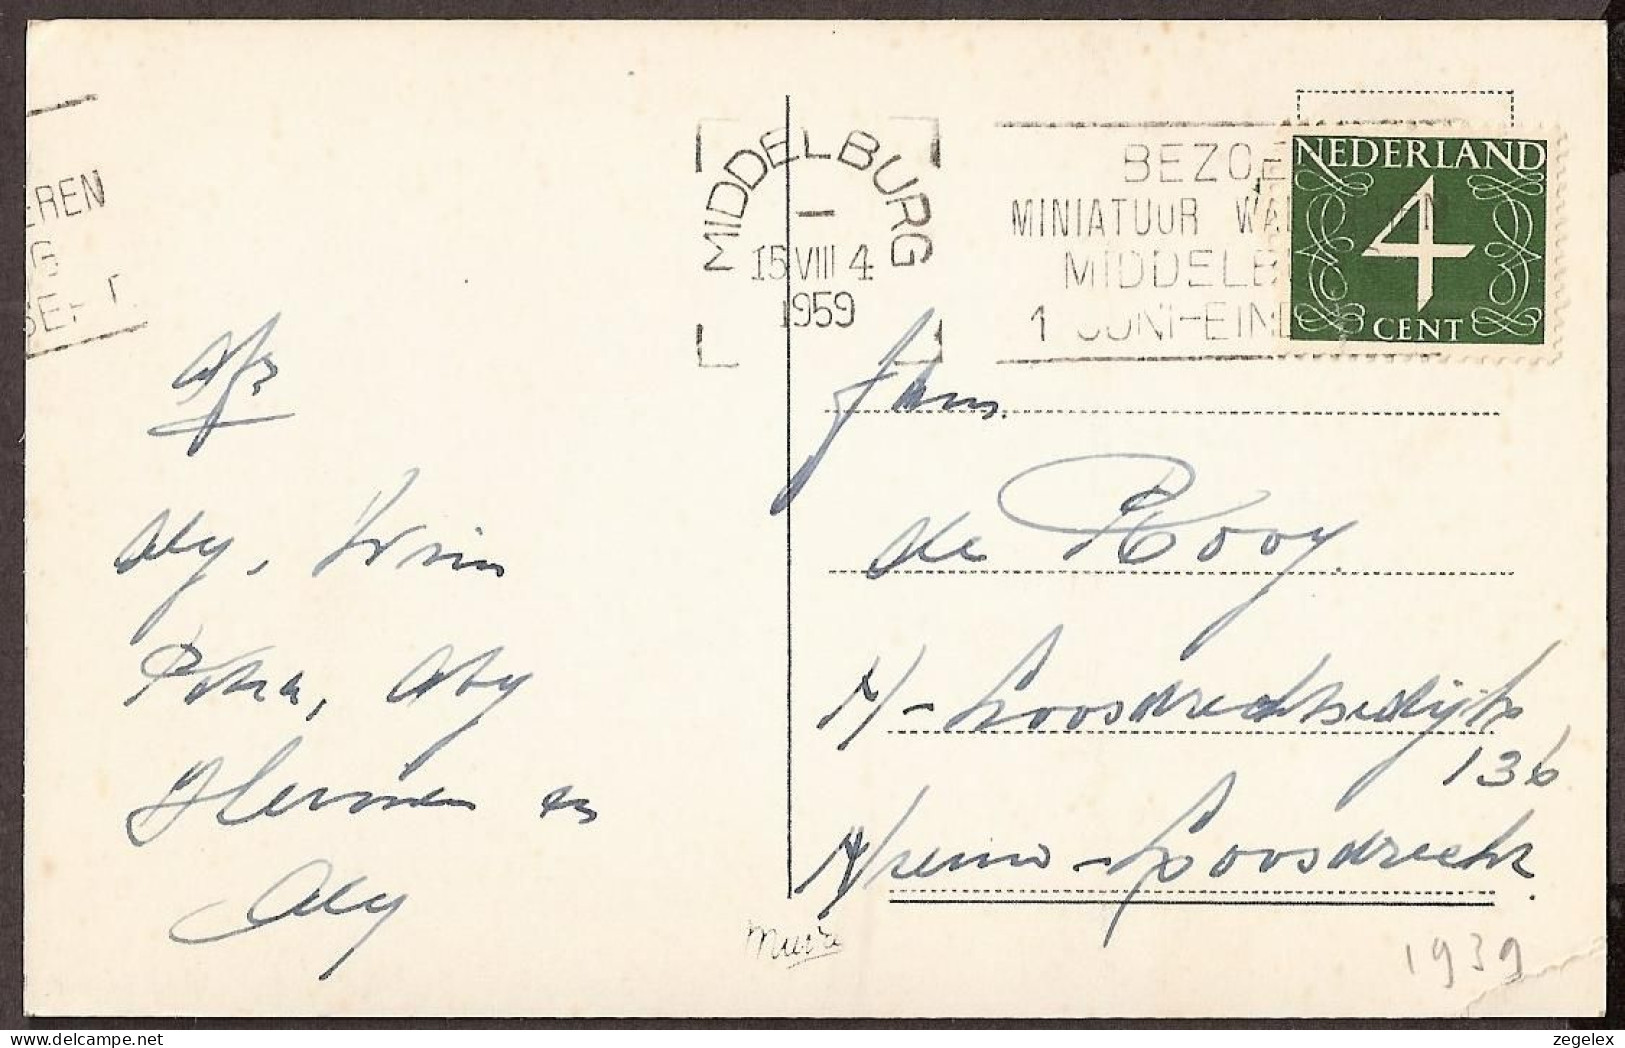 EREN
SEPT.
MIDDELBURG
15 VIII 4
1959
BEZOE
MINIATUUR WAL
MIDDELB
1 JUNI-EIND
NEDERLAND
4
CENT
Afz
Aly, Wim
Aby
Hermen en
Aly
Fam.
de Rooy.
N-Loosdrechtsedijk
136
Nieuw-Loosdrecht.
1939
zegelex